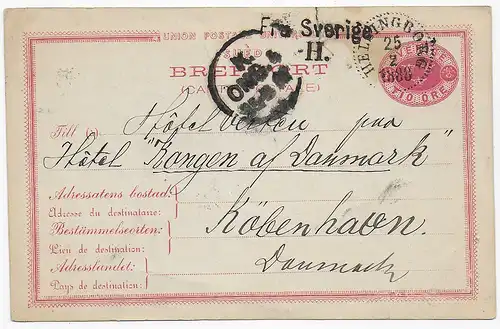 Fra Sverige
H.
UNION POSTALE UNIVERSELLE
BREFKORT
(CARTE POSTALE)
HELSINGBORG
25
2
1886
SVERIGE
TIO ÖRE
K.
OMB. 4
Till (à)
Hôtel Verten paa
Hôtel "Kongen af Danmark"
Adressatens bostad:
Adresse du destinataire:
Bestämmelseorten:
Lieu de destination:
Adresslandet:
Pays de destination:
Köbenhavn.
Danmark